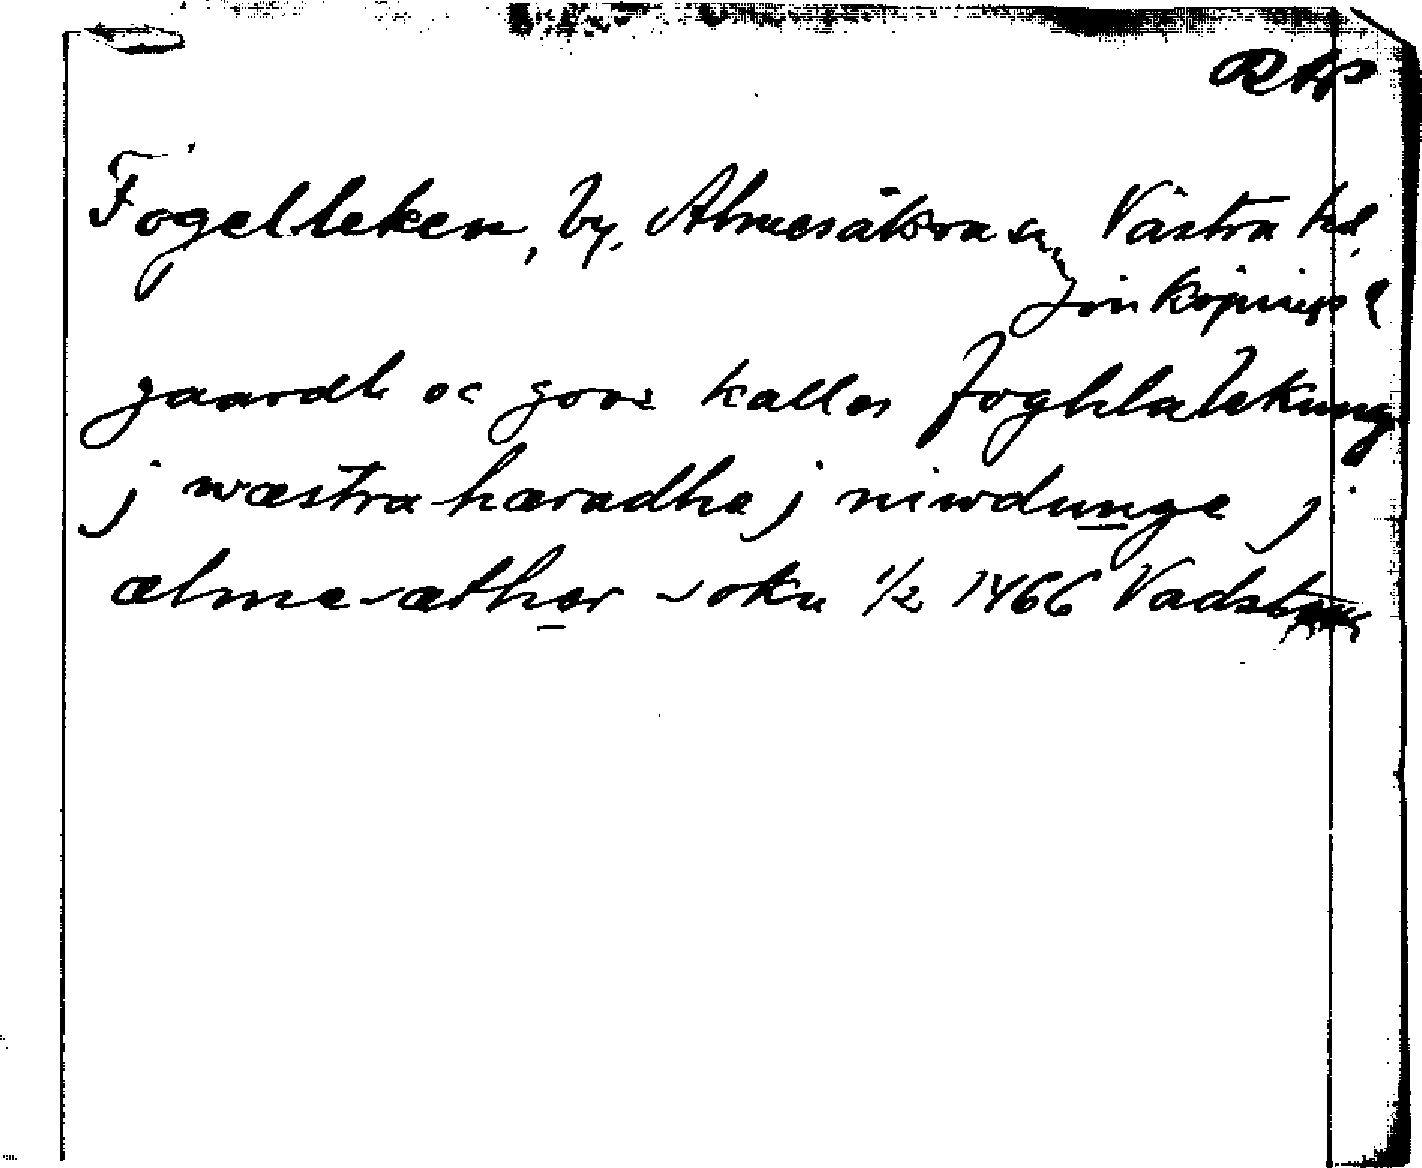 RAp
Fogelleken, by, Almesåkra sn, Västra hd,
Jönköpings l
gaardh oc gotz kalles foghlalekung
j wæstra hæradhe j niwdunge j
ælmesæther sokn 1/2 1466 Vadstena